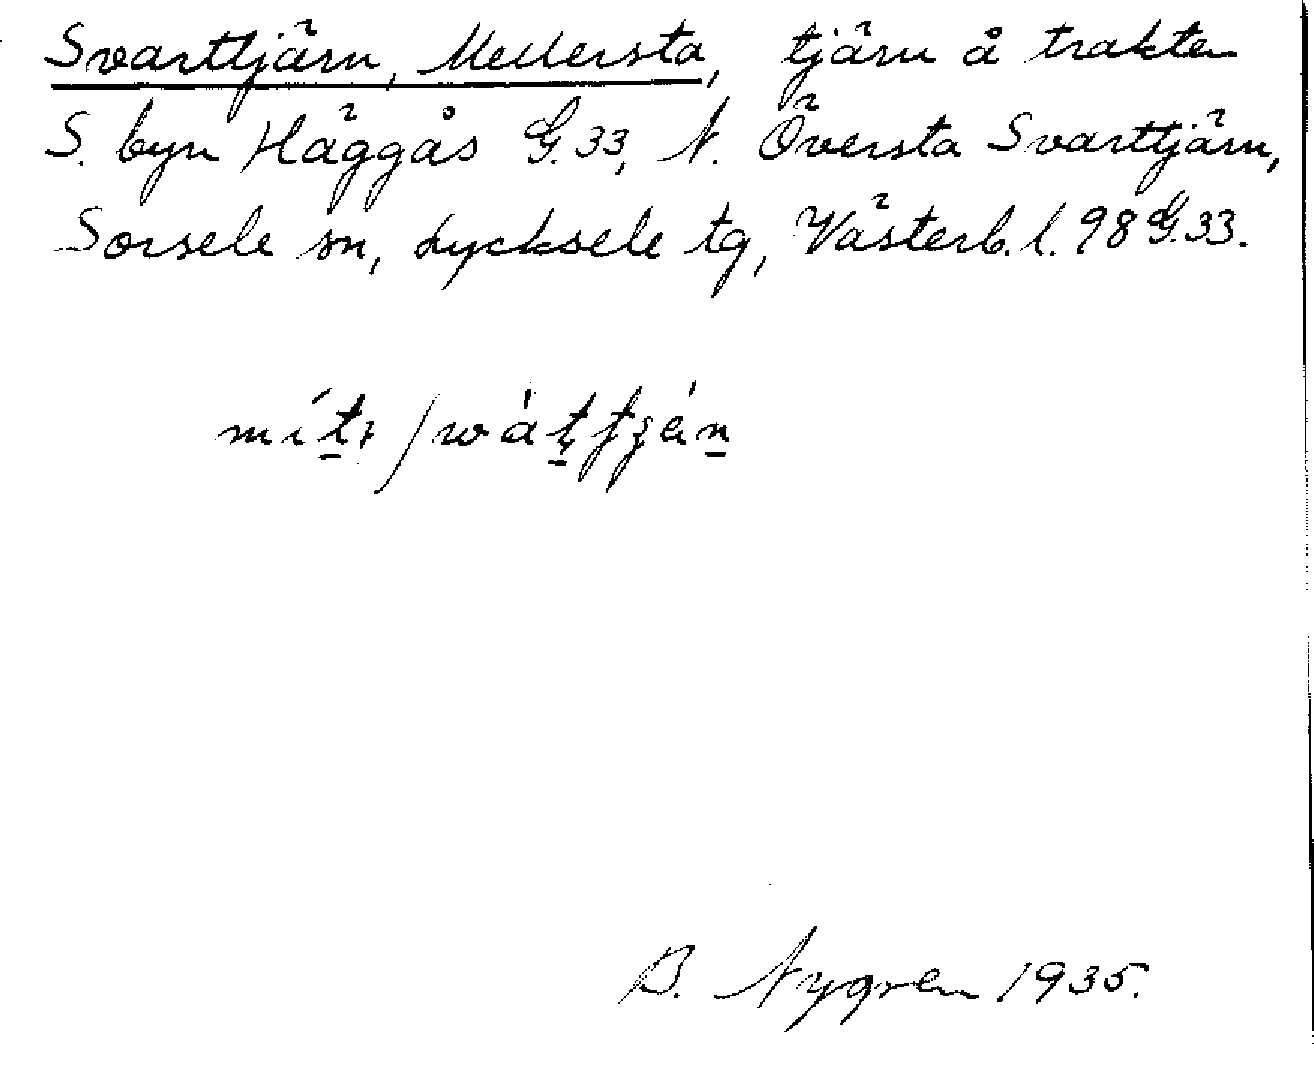 Svarttjärn, Mellersta, tjärn å trakten
S. byn Häggås G.33, N. Översta Svarttjärn,
Sorsele sn, Lycksele tg, Västerb. l. 98 G.33.
B. Nygren 1935.